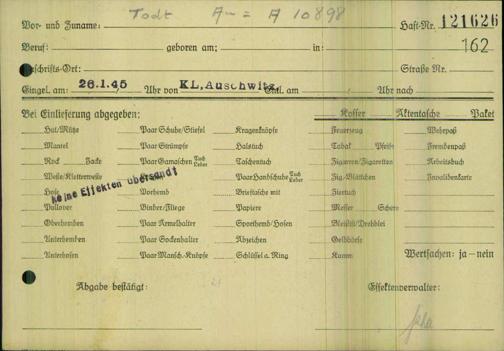 Todt A== A 10898
Vor- und Zuname: Haft-Nr. 121626
Beruf: geboren am: in: 162
Anschrifts-Ort: Straße Nr.
Eingel. am: 26.1.45 Uhr von KL.Auschwitz Entl. am Uhr nach
Bei Einlieferung abgegeben: Koffer Aktentasche Paket
Hut/Mütze Paar Schuhe/Stiefel Kragenknöpfe Feuerzeug Wehrpaß
Mantel Paar Strümpfe Halstuch Tabak Pfeife Fremdenpaß
Rock Jacke Paar Gamaschen Tuch Leder Taschentuch Zigarren/Zigaretten Arbeitsbuch
Weste/Kletterweste Paar Handschuhe Tuch Leder Zig.-Blättchen Invalidenkarte
keine Effekten übersandt
Hose Vorhemd Brieftasche mit Feuerzeug
Pullover Binder/Fliege Papiere Messer Schere
Oberhemden Paar Ärmelhalter Sporthemd/Hosen Bleistift/Drehblei
Unterhemden Paar Sockenhalter Abzeichen Geldbörse
Unterhosen Paar Mansch.-Knöpfe Schlüssel a. Ring Kamm Wertsachen: ja – nein
Abgabe bestätigt: Effektenverwalter: